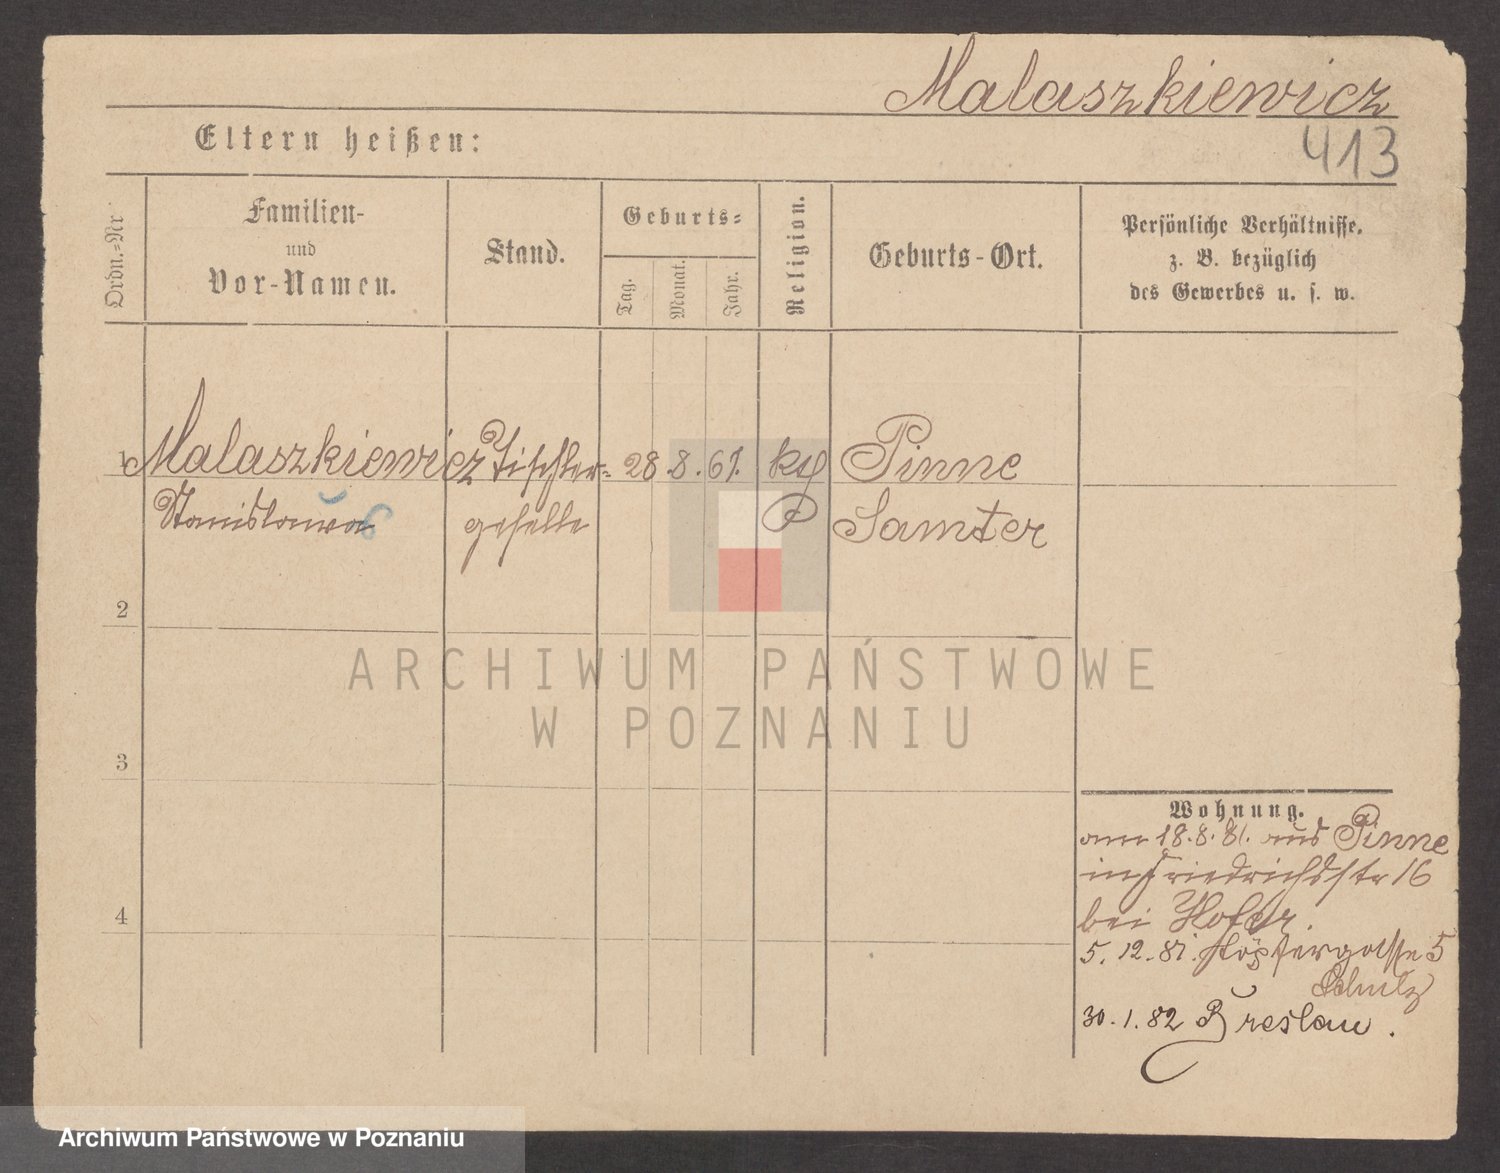 Malaszkiewicz
413
Eltern heißen:
Ordn.=Nr
Familien-
und
Vor-Namen.
Stand.
Geburts=
Tag.
Monat.
Jahr.
Religion.
Geburts-Ort.
Persönliche Verhältnisse,
z. B. bezüglich
des Gewerbes u. s. w.
1 Malaszkiewicz Tischler= 28.8.61. kth Pinne
Stanislawa geselle P Samter
2
3
4
Wohnung.
am 18.8.81. aus Pinne
in Friedrichsstr 16
bei Hofer.
5.12.81. Töpfergasse 5
Schulz
30.1.82 Breslau.
ARCHIWUM PAŃSTWOWE
W POZNANIU
Archiwum Państwowe w Poznaniu